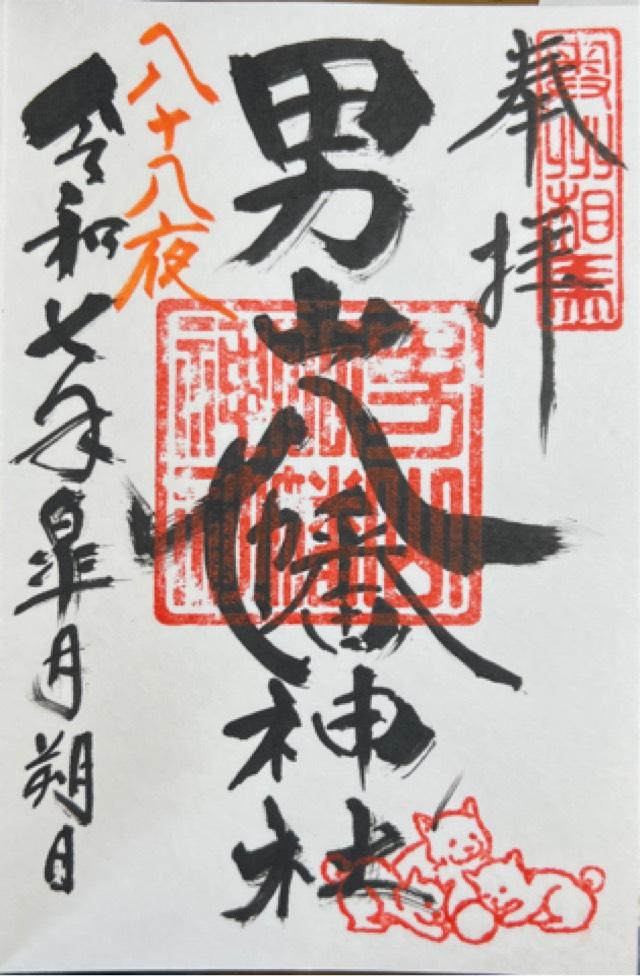 奥州相馬
奉拝
男山八幡神社
八十八夜
令和七年皐月朔日